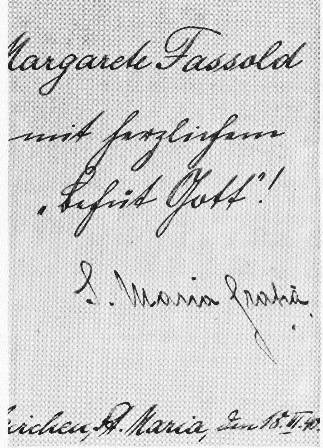 Margarete Fassold
mit herzlichem
„Behüt Gott"!
S. Maria
kirchen, St. Maria, den 18. VI. 40.